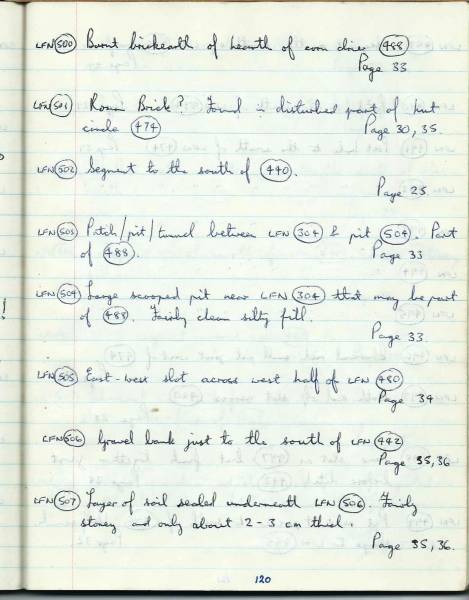 LFN 500 Burnt brickearth of hearth of corn drier 488
Page 33
LFN 501 Roman Brick? Found in disturbed part of hut
circle 474 Page 30, 35.
LFN 502 Segment to the south of 440.
Page 25
LFN 503 Patch/pit/tunnel between LFN 304 & pit 504. Part
of 488. Page 33
LFN 504 Large scooped pit near LFN 304 that may be part
of 488. Fairly clean silty fill.
Page 33.
LFN 505 East-west slot across west half of LFN 480
Page 34
LFN 506 Gravel bank just to the south of LFN 442
Page 35,36
LFN 507 Layer of soil sealed underneath LFN 506. Fairly
stoney and only about 2-3 cm thick.
Page 35, 36.
120